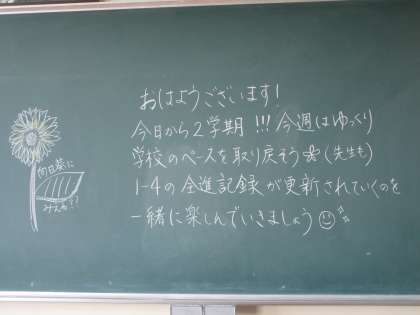 おはようございます!
今日から2学期!!! 今週はゆっくり
学校のペースを取り戻そう(先生も)
1-4の全進記録が更新されていくのを
一緒に楽しんでいきましょう
向日葵に
みえる??